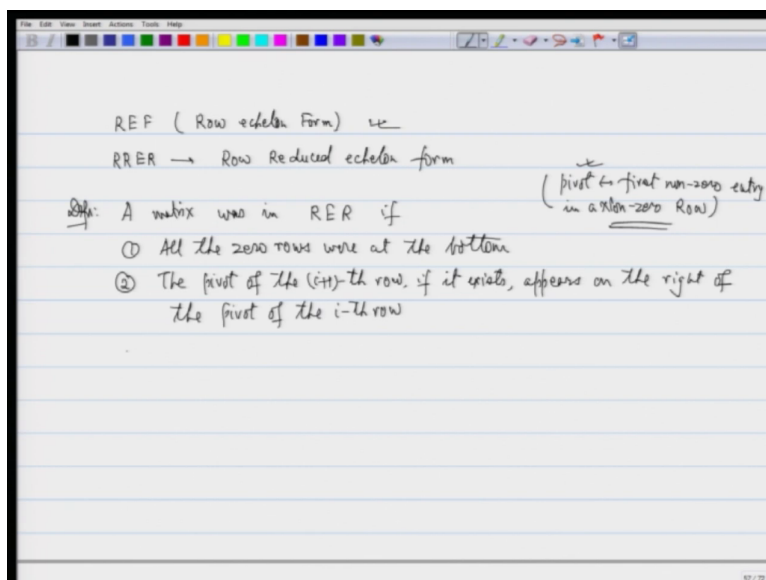 File Edit View Insert Actions Tools Help
REF ( Row echelon Form)
RRER → Row Reduced echelon form
( pivot ↔ first non-zero entry
in a Non-zero Row)
Defn: A matrix was in RER if
① All the zero rows were at the bottom
② The pivot of the (i+1)-th row, if it exists, appears on the right of
the pivot of the i-th row